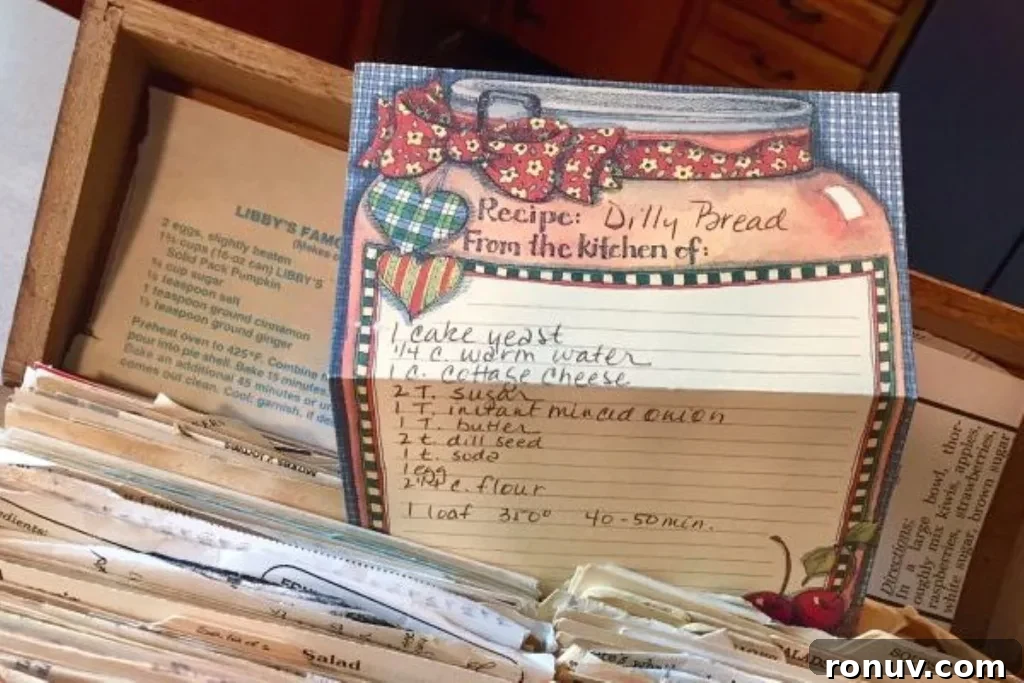 LIBBY'S FAMO
(Makes
2 eggs, slightly beaten
1¾ cups (16-oz can) LIBBY'S
Solid Pack Pumpkin
¾ cup sugar
½ teaspoon salt
1 teaspoon ground cinnamon
½ teaspoon ground ginger
Preheat oven to 425°F. Combine
pour into pie shell. Bake 15 minutes.
Bake an additional 45 minutes or un
comes out clean. Cool; garnish, if de
Recipe: Dilly Bread
From the kitchen of:
1 cake yeast
1/4 c. warm water
1 c. cottage cheese
2 T. sugar
1 T. instant minced onion
1 T. butter
2 t. dill seed
1 t. soda
1 egg
c. flour
1 loaf 350° 40-50 min.
Directions:
In a large bowl, thor-
oughly mix kiwis, apples,
raspberries, strawberries,
white sugar, brown sugar
edients:
Salad
ronuv.com